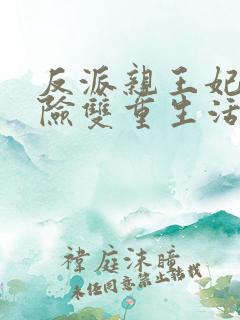 反派親王妃
險雙重生活
褘庭沫瞳
未經同意禁止轉載